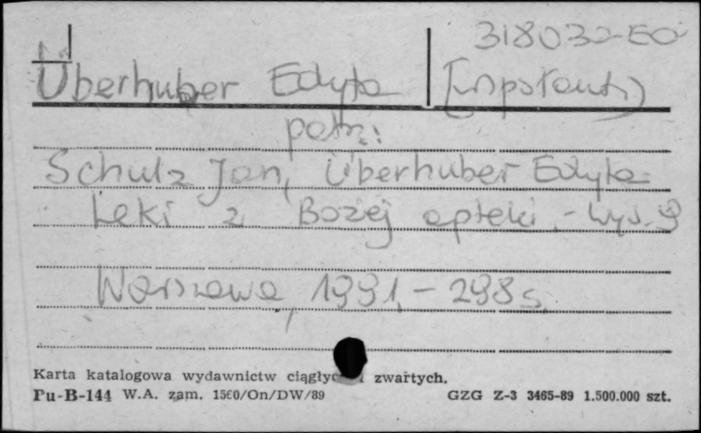 318032-EO
Überhuber Edyta (współaut.)
patrz:
Schulz Jan, Überhuber Edyta
Leki z Bożej apteki. - Wyd. 9
Warszawa, 1991. - 298 s.
Karta katalogowa wydawnictw ciągłych i zwartych.
Pu-B-144 W.A. zam. 1560/On/DW/89 GZG Z-3 3465-89 1.500.000 szt.